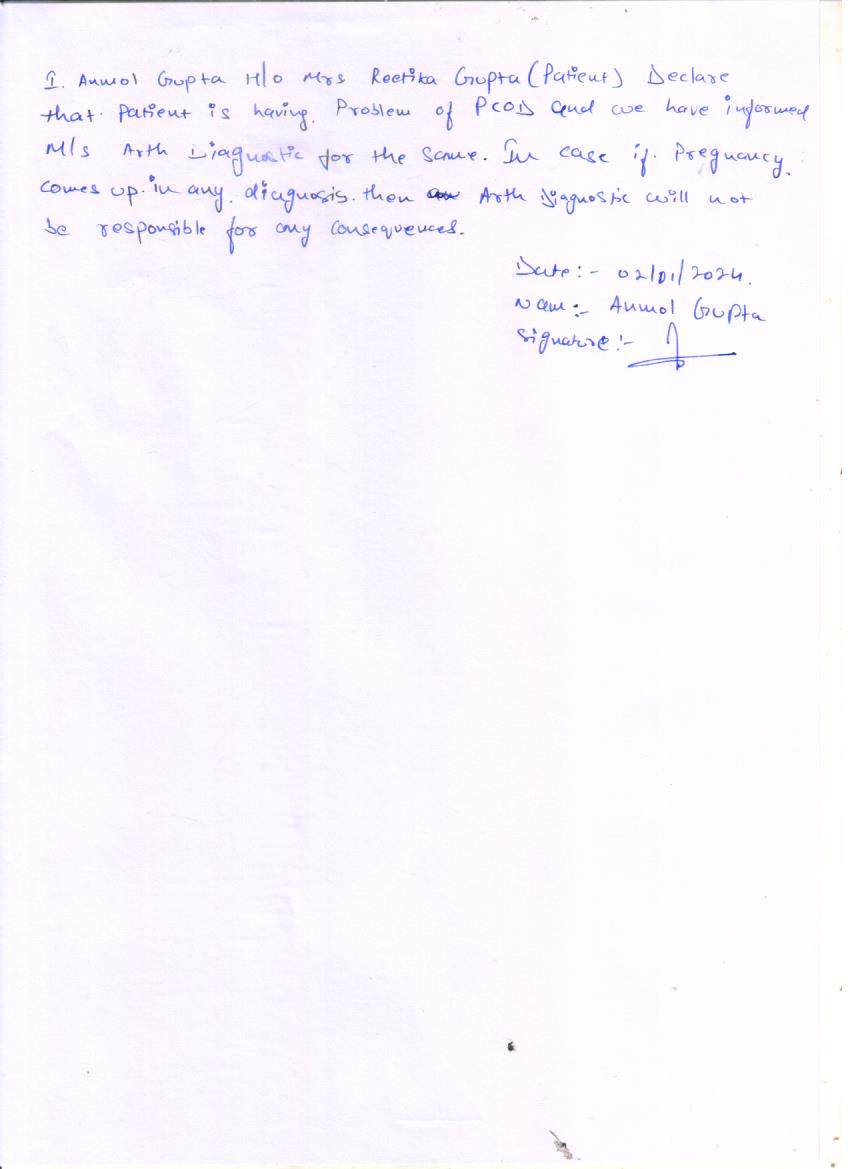 I. Anmol Gupta H/o Mrs Reetika Gupta (Patient) Declare
that. Patient is having. Problem of PCOD and we have informed
M/s Arth Diagnostic for the same. In case if. Pregnancy.
comes up. in any. diagnosis. then Arth Diagnostic will not
be responsible for any consequences.
Date:- 02/01/2024.
Nam:- Anmol Gupta
Signature:-